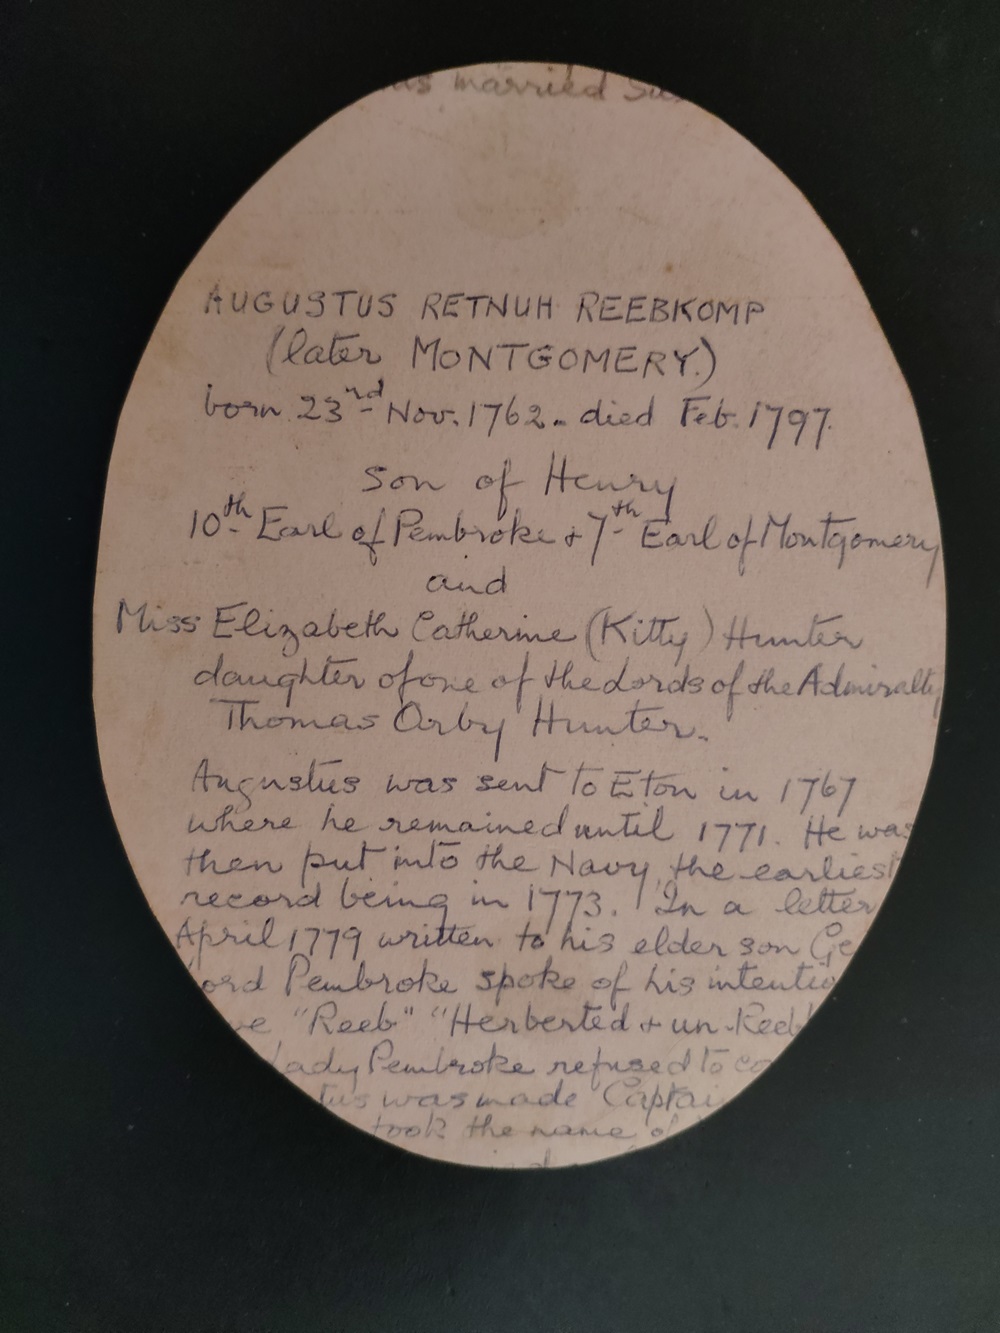 as married
AUGUSTUS RETNUH REEBKOMP
(later MONTGOMERY.)
born 23nd Nov. 1762. died Feb. 1797.
son of Henry
10th Earl of Pembroke & 7th Earl of Montgomery
and
Miss Elizabeth Catherine (Kitty) Hunter
daughter of one of the Lords of the Admiralty
Thomas Orby Hunter.
Augustus was sent to Eton in 1767
where he remained until 1771. He was
then put into the Navy, the earliest
record being in 1773. In a letter
April 1779 written to his elder son Ge
ord Pembroke spoke of his intentio
ve "Reeb" "Herberted & un-Reeb
Lady Pembroke refused to co
tus was made Captai
took the name of